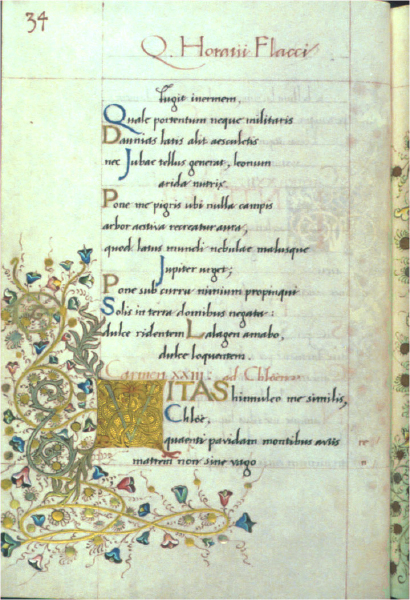 34
Q. Horatii Flacci
fugit inermem,
Quale portentum neque militaris
Daunias latis alit aesculetis
nec Jubae tellus generat, leonum
arida nutrix.
Pone me pigris ubi nulla campis
arbor aestiva recreatur aura,
quod latus mundi nebulae malusque
Jupiter urget;
Pone sub curru nimium propinqui
Solis in terra domibus negata:
dulce ridentem Lalagen amabo,
dulce loquentem.
Carmen XXIII: ad Chloen
VITAS hinnuleo me similis,
Chloë,
quaerenti pavidam montibus aviis
matrem non sine vago